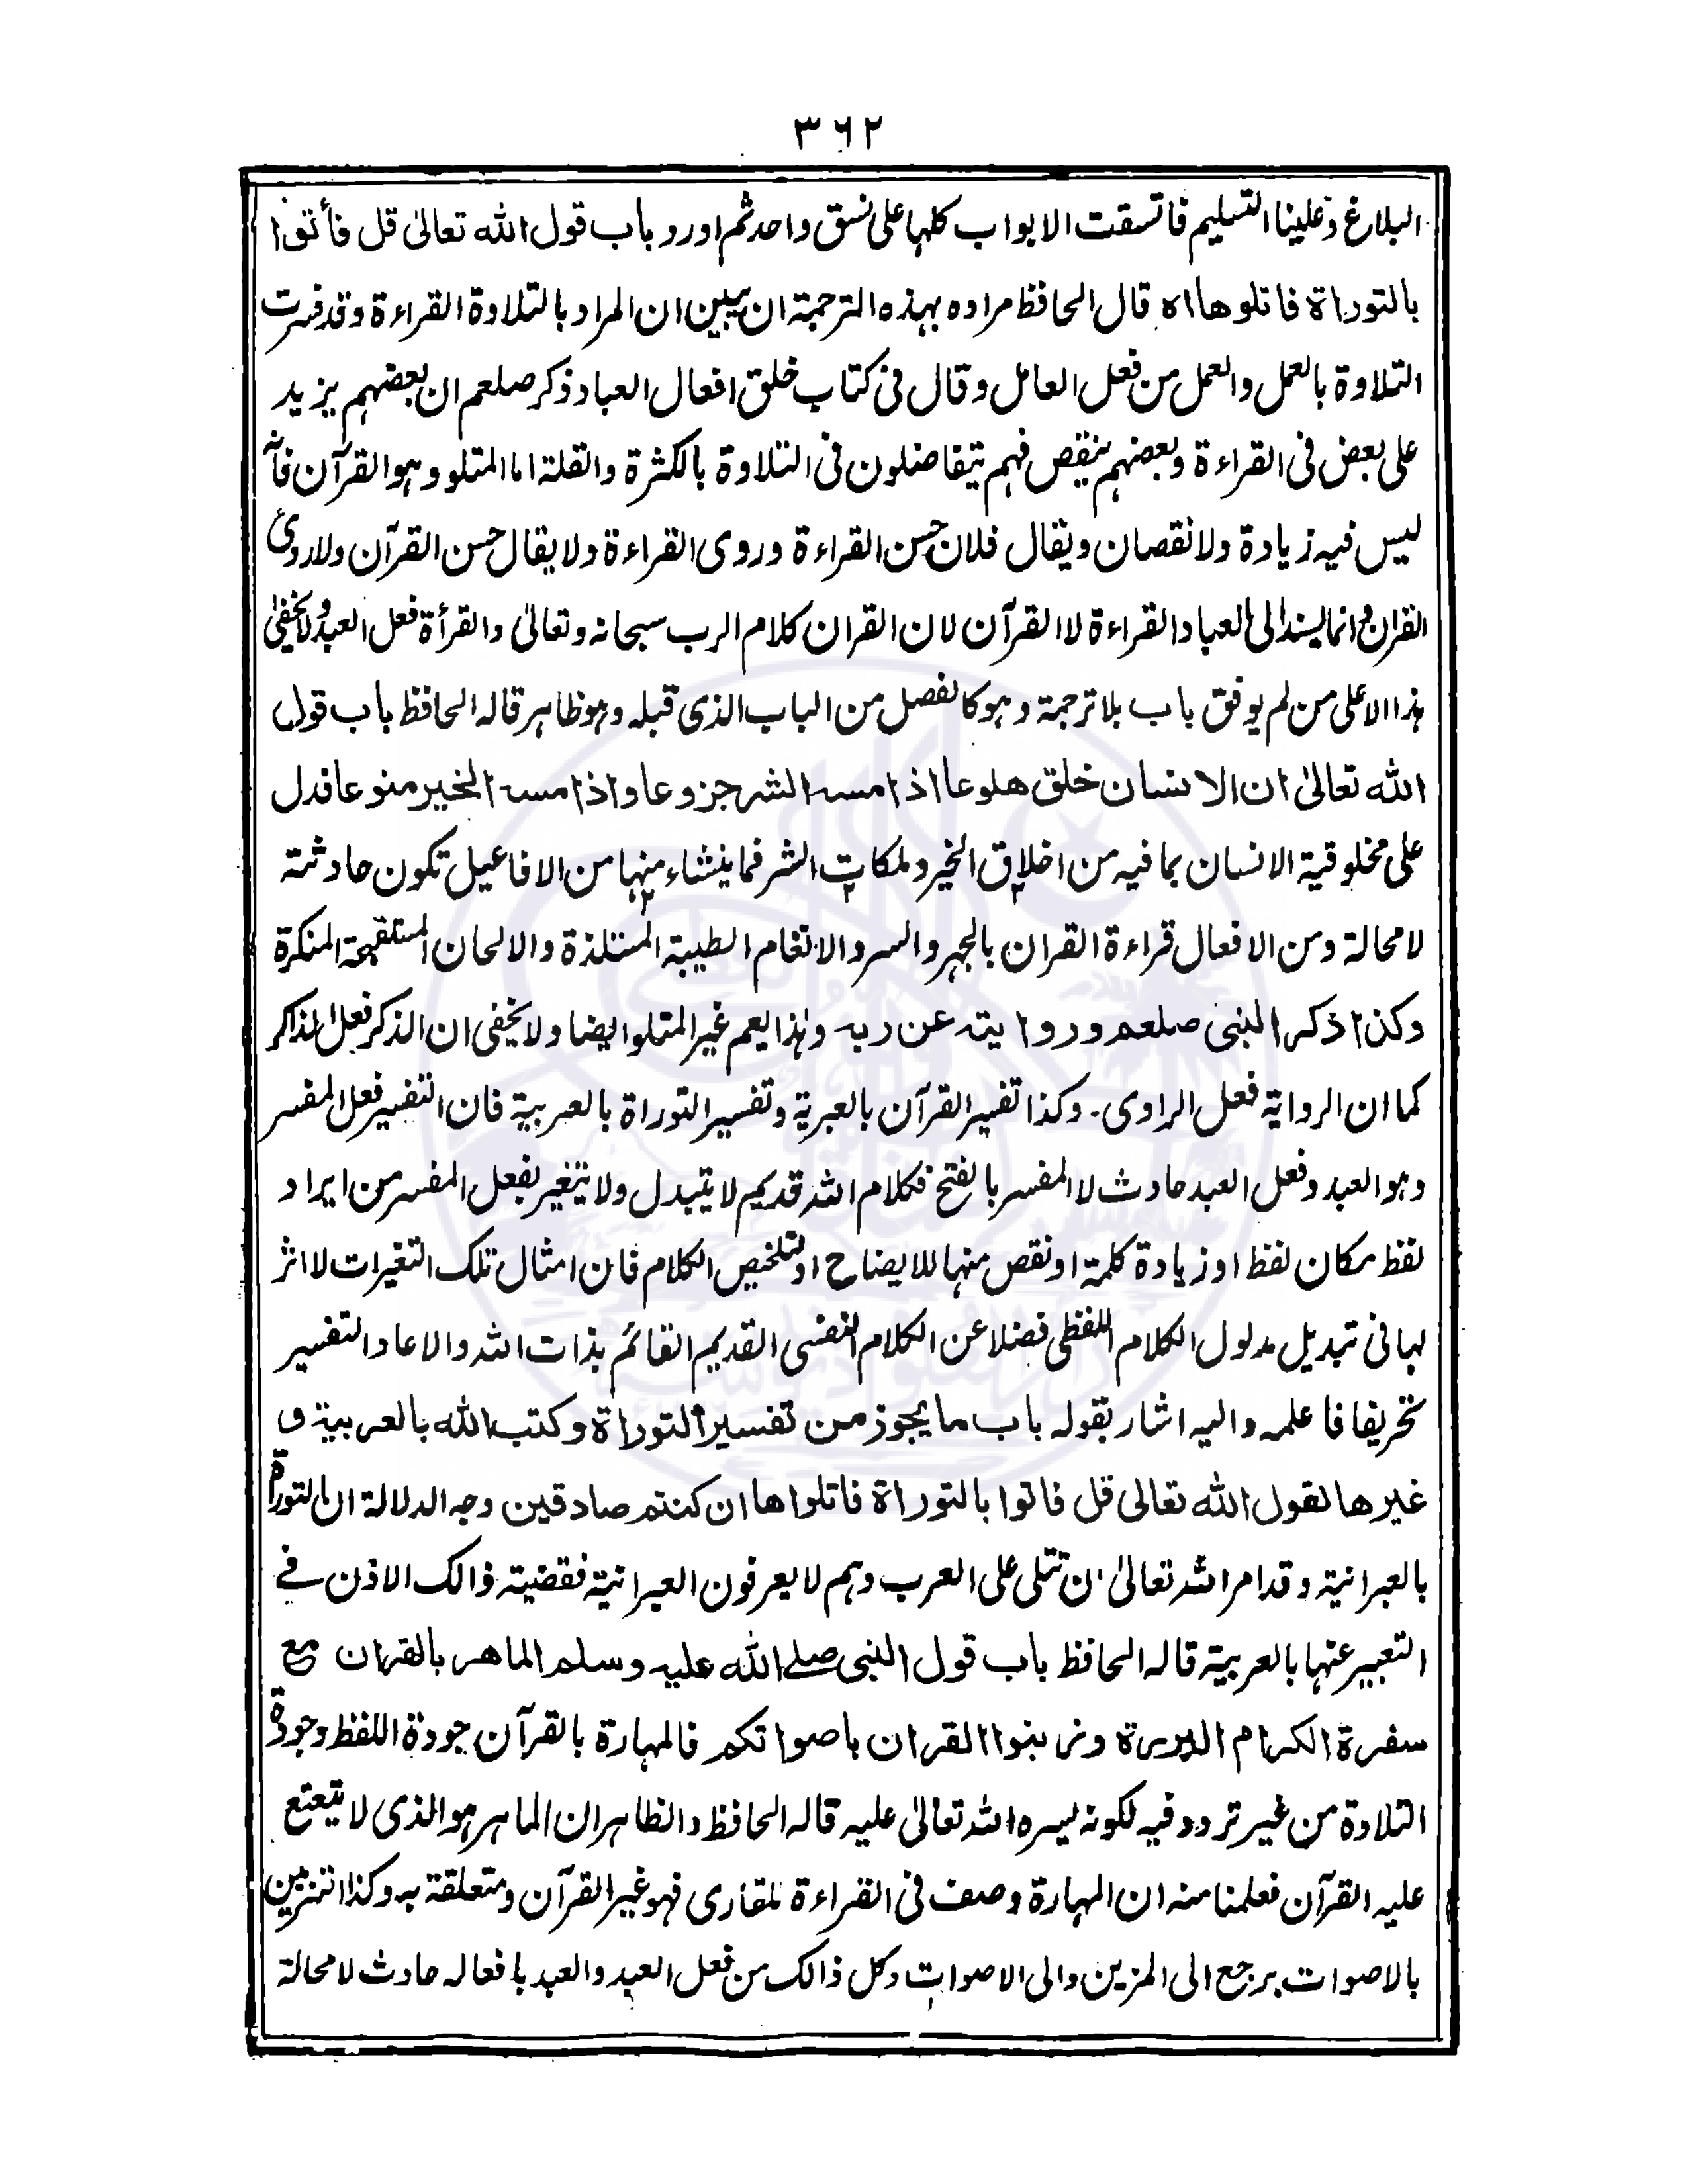 ۳۶۲
البلاغ وعلينا التسليم فاتسقت الابواب كلها على نسق واحد ثم اورد باب قول الله تعالىٰ قل فأتوا
بالتوراة فاتلوها اه قال الحافظ مراده بهذه الترجمة ان يبين ان المراد بالتلاوة القراءة وقد فسرت
التلاوة بالعمل والعمل من فعل العامل وقال فى كتاب خلق افعال العباد ذكر صلعم ان بعضهم يزيد
على بعض فى القراءة وبعضهم ينقص فهم يتفاضلون فى التلاوة بالكثرة والقلة اما المتلو وهو القرآن فانه
ليس فيه زيادة ولا نقصان ويقال فلان حسن القراءة وروى القراءة ولا يقال حسن القرآن ولا روئ
القران وانما يسند الى العباد القراءة لا القرآن لان القران كلام الرب سبحانه وتعالىٰ والقرأة فعل العبد ولا يخفىٰ
هذا الا على من لم يوفق باب بلا ترجمة وهو كالفصل من الباب الذى قبله وهو ظاهر قاله الحافظ باب قول
الله تعالىٰ ان الانسان خلق هلوعا اذا مسه الشر جزوعا واذا مسه الخير منوعا فدل
على مخلوقية الانسان بما فيه من اخلاق الخير وملكات الشر فما ينشاء منها من الافاعيل تكون حادثة
لا محالة ومن الافعال قراءة القران بالجهر والسر والانغام الطيبة المستلذة والالحان المستقبحة المنكرة
وكذا ذكر النبى صلعم وروايته عن ربه وهذا يعم غير المتلو ايضا ولا يخفى ان الذكر فعل الذاكر
كما ان الرواية فعل الراوى۔ وكذا تفسير القرآن بالعبرية وتفسير التوراة بالعربية فان التفسير فعل المفسر
وهو العبد وفعل العبد حادث لا المفسر بالفتح فكلام الله قديم لا يتبدل ولا يتغير بفعل المفسر من ايراد
لفظ مكان لفظ او زيادة كلمة او نقص منها للايضاح او لتلخيص الكلام فان امثال تلك التغيرات لا اثر
لها فى تبديل مدلول الكلام اللفظى فضلا عن الكلام النفسى القديم القائم بذات الله والا عاد التفسير
تحريفا فاعلمه واليه اشار بقوله باب ما يجوز من تفسير التوراة وكتب الله بالعربية و
غيرها لقول الله تعالى قل فاتوا بالتوراة فاتلواها ان كنتم صادقين وجه الدلالة ان التوراة
بالعبرانية وقد امر الله تعالىٰ ان تتلى على العرب وهم لا يعرفون العبرانية فقضية ذالك الاذن فے
التعبير عنها بالعربية قاله الحافظ باب قول النبى صلے الله عليه وسلم الماهر بالقران مع
سفرة الكرام البررة وزينوا القران باصواتكم فالمهارة بالقرآن جودة اللفظ وجودة
التلاوة من غير تردد فيه لكونه يسره الله تعالىٰ عليه قاله الحافظ والظاهر ان الماهر هو الذى لا يتعتع
عليه القرآن فعلمنا منه ان المهارة وصف فى القراءة للقارى فهو غير القرآن ومتعلقة به وكذا التزيين
بالاصوات يرجع الى المزين والى الاصوات وكل ذالك من فعل العبد والعبد بافعاله حادث لا محالة